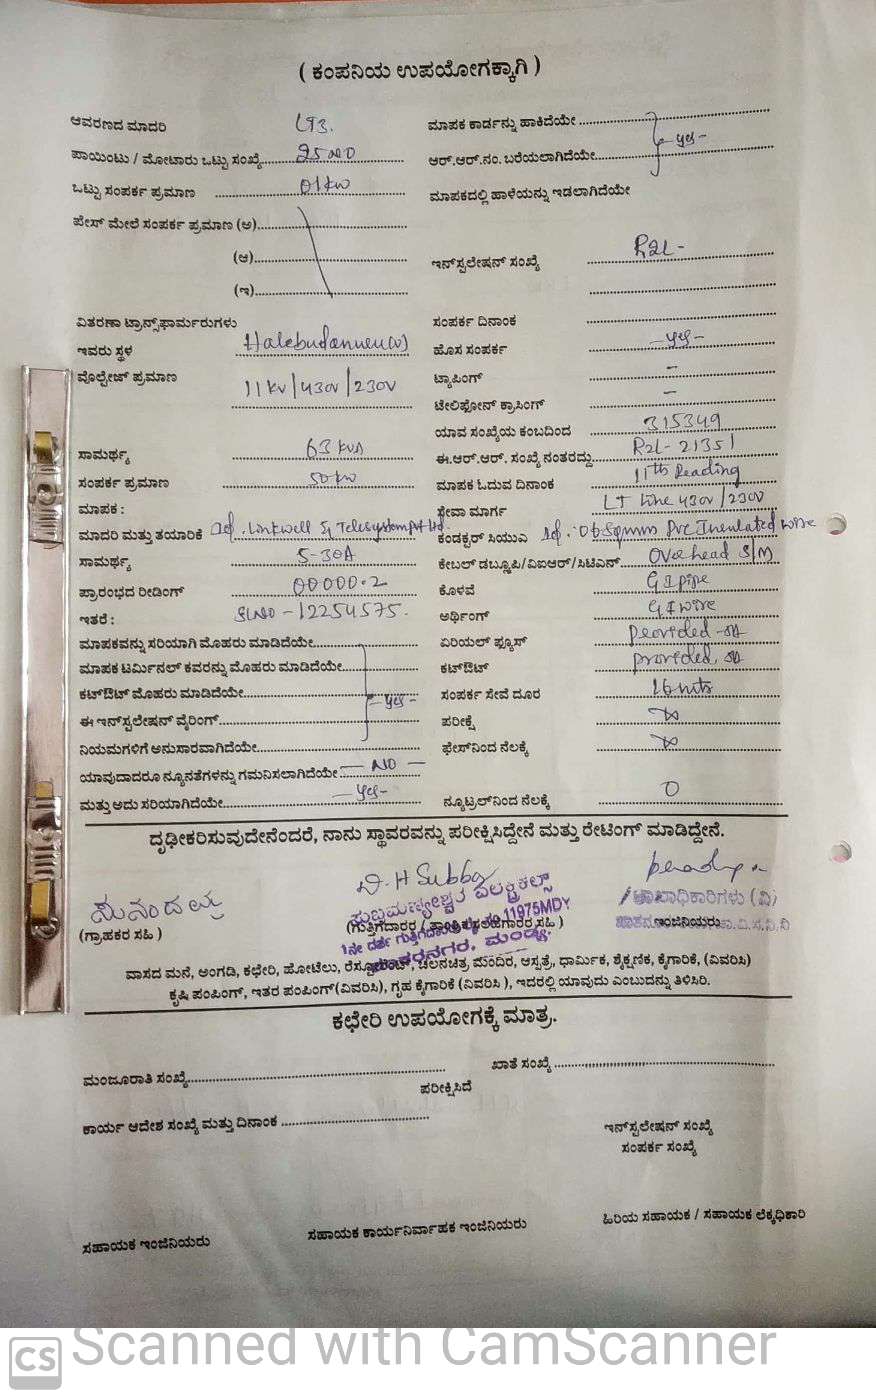 ( ಕಂಪನಿಯ ಉಪಯೋಗಕ್ಕಾಗಿ )
ಆವರಣದ ಮಾದರಿ LT3.
ಪಾಯಿಂಟು / ಮೋಟಾರು ಒಟ್ಟು ಸಂಖ್ಯೆ 25 NO
ಒಟ್ಟು ಸಂಪರ್ಕ ಪ್ರಮಾಣ 01 kw
ಪೇಸ್ ಮೇಲೆ ಸಂಪರ್ಕ ಪ್ರಮಾಣ (ಅ)
(ಆ)
(ಇ)
ವಿತರಣಾ ಟ್ರಾನ್ಸ್‌ಫಾರ್ಮರುಗಳು
ಇವರು ಸ್ಥಳ
ವೊಲ್ಟೇಜ್ ಪ್ರಮಾಣ 11 KV/430V/230V
ಸಾಮರ್ಥ್ಯ 63 KVA
ಸಂಪರ್ಕ ಪ್ರಮಾಣ 50 kw
ಮಾಪಕ :
ಮಾದರಿ ಮತ್ತು ತಯಾರಿಕೆ Linkwell Telesystem Pvt Ltd.
ಸಾಮರ್ಥ್ಯ 5-30A
ಪ್ರಾರಂಭದ ರೀಡಿಂಗ್ 00000.2
ಇತರೆ : SLNO - 12254575.
ಮಾಪಕವನ್ನು ಸರಿಯಾಗಿ ಮೊಹರು ಮಾಡಿದೆಯೇ
ಮಾಪಕ ಟರ್ಮಿನಲ್ ಕವರನ್ನು ಮೊಹರು ಮಾಡಿದೆಯೇ
ಕಟ್‌ಔಟ್ ಮೊಹರು ಮಾಡಿದೆಯೇ yes-
ಈ ಇನ್‌ಸ್ಟಲೇಷನ್ ವೈರಿಂಗ್
ನಿಯಮಗಳಿಗೆ ಅನುಸಾರವಾಗಿದೆಯೇ
ಯಾವುದಾದರೂ ನ್ಯೂನತೆಗಳನ್ನು ಗಮನಿಸಲಾಗಿದೆಯೇ - NO -
ಮತ್ತು ಅದು ಸರಿಯಾಗಿದೆಯೇ - yes-
ಮಾಪಕ ಕಾರ್ಡನ್ನು ಹಾಕಿದೆಯೇ
ಆರ್.ಆರ್.ನಂ. ಬರೆಯಲಾಗಿದೆಯೇ yes-
ಮಾಪಕದಲ್ಲಿ ಹಾಳೆಯನ್ನು ಇಡಲಾಗಿದೆಯೇ
ಇನ್‌ಸ್ಟಲೇಷನ್ ಸಂಖ್ಯೆ R2L-
ಸಂಪರ್ಕ ದಿನಾಂಕ
ಹೊಸ ಸಂಪರ್ಕ - yes-
ಟ್ಯಾಪಿಂಗ್ -
ಟೇಲಿಫೋನ್ ಕ್ರಾಸಿಂಗ್ -
ಯಾವ ಸಂಖ್ಯೆಯ ಕಂಬದಿಂದ 315349
ಈ.ಆರ್.ಆರ್. ಸಂಖ್ಯೆ ನಂತರದ್ದು R2L- 21351
ಮಾಪಕ ಓದುವ ದಿನಾಂಕ 11th Reading
ಸೇವಾ ಮಾರ್ಗ LT line 430V/230V
ಕಂಡಕ್ಟರ್ ಸಿಯುಎ 06 Sqmm PVC Insulated wire
ಕೇಬಲ್ ಡಬ್ಲ್ಯೂಪಿ/ವಿಐಆರ್/ಸಿಟಿಎಸ್ Over head S/M
ಕೊಳವೆ G I pipe
ಅರ್ಥಿಂಗ್ G I wire
ಏರಿಯಲ್ ಫ್ಯೂಸ್ Provided
ಕಟ್‌ಔಟ್ provided.
ಸಂಪರ್ಕ ಸೇವೆ ದೂರ 16 mts
ಪರೀಕ್ಷೆ
ಫೇಸ್‌ನಿಂದ ನೆಲಕ್ಕೆ
ನ್ಯೂಟ್ರಲ್‌ನಿಂದ ನೆಲಕ್ಕೆ 0
ದೃಢೀಕರಿಸುವುದೇನೆಂದರೆ, ನಾನು ಸ್ಥಾವರವನ್ನು ಪರೀಕ್ಷಿಸಿದ್ದೇನೆ ಮತ್ತು ರೇಟಿಂಗ್ ಮಾಡಿದ್ದೇನೆ.
D.H Subba
ಸುನಂದಮ್ಮ
(ಗ್ರಾಹಕರ ಸಹಿ )
ಸುಬ್ರಮಣ್ಯೇಶ್ವರ ಎಲೆಕ್ಟ್ರಿಕಲ್ಸ್
11975MDY
ಇಂಜಿನಿಯರು
ವಾಸದ ಮನೆ, ಅಂಗಡಿ, ಕಛೇರಿ, ಹೋಟೆಲು, ರೆಸ್ಟೋರೆಂಟ್, ಚಲನಚಿತ್ರ ಮಂದಿರ, ಆಸ್ಪತ್ರೆ, ಧಾರ್ಮಿಕ, ಶೈಕ್ಷಣಿಕ, ಕೈಗಾರಿಕೆ, (ವಿವರಿಸಿ)
ಕೃಷಿ ಪಂಪಿಂಗ್, ಇತರ ಪಂಪಿಂಗ್(ವಿವರಿಸಿ), ಗೃಹ ಕೈಗಾರಿಕೆ (ವಿವರಿಸಿ ), ಇದರಲ್ಲಿ ಯಾವುದು ಎಂಬುದನ್ನು ತಿಳಿಸಿರಿ.
ಕಛೇರಿ ಉಪಯೋಗಕ್ಕೆ ಮಾತ್ರ.
ಮಂಜೂರಾತಿ ಸಂಖ್ಯೆ
ಖಾತೆ ಸಂಖ್ಯೆ
ಪರೀಕ್ಷಿಸಿದೆ
ಕಾರ್ಯ ಆದೇಶ ಸಂಖ್ಯೆ ಮತ್ತು ದಿನಾಂಕ
ಇನ್‌ಸ್ಟಲೇಷನ್ ಸಂಖ್ಯೆ
ಸಂಪರ್ಕ ಸಂಖ್ಯೆ
ಸಹಾಯಕ ಇಂಜಿನಿಯರು
ಸಹಾಯಕ ಕಾರ್ಯನಿರ್ವಾಹಕ ಇಂಜಿನಿಯರು
ಹಿರಿಯ ಸಹಾಯಕ / ಸಹಾಯಕ ಲೆಕ್ಕಧಿಕಾರಿ
CS Scanned with CamScanner